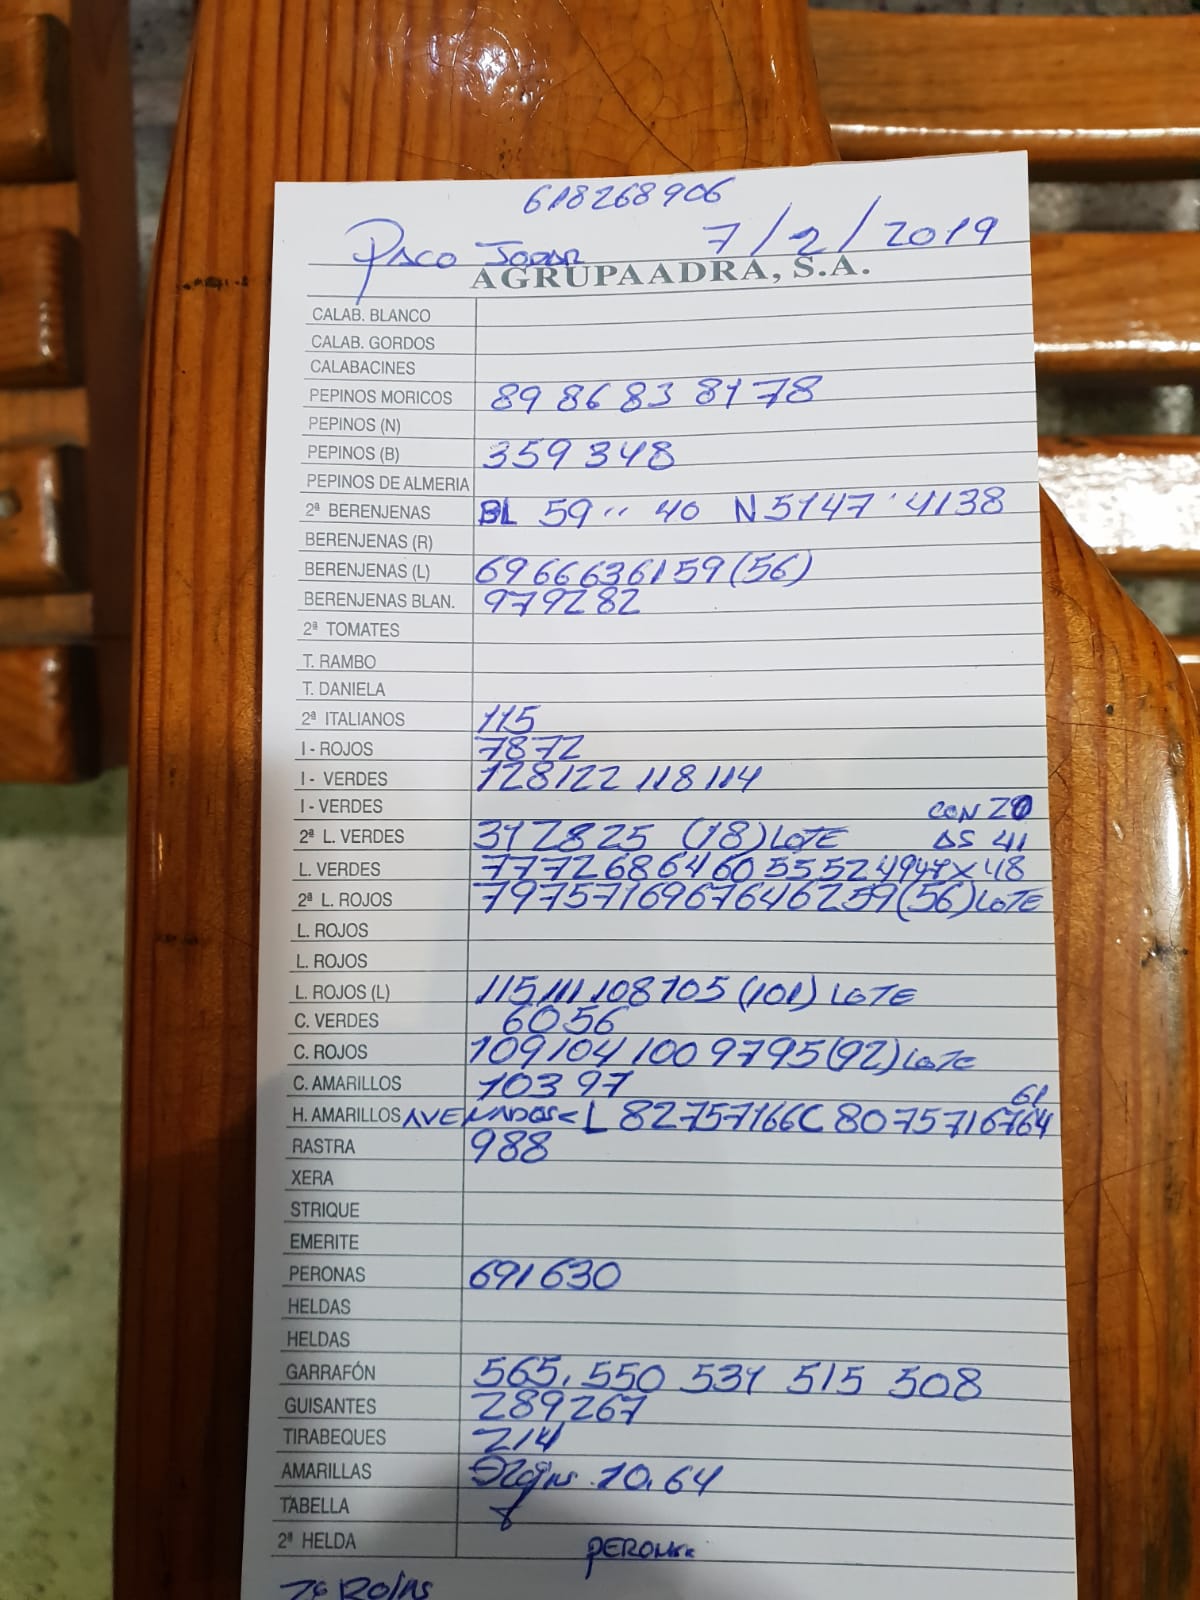 618268906
PACO JODAR 7/2/2019
AGRUPAADRA, S.A.
CALAB. BLANCO
CALAB. GORDOS
CALABACINES
PEPINOS MORICOS 89 86 83 81 78
PEPINOS (N)
PEPINOS (B) 359 348
PEPINOS DE ALMERIA
2ª BERENJENAS BL 59 .. 40 N 51 47 · 41 38
BERENJENAS (R)
BERENJENAS (L) 69 66 63 61 59 (56)
BERENJENAS BLAN. 97 92 82
2ª TOMATES
T. RAMBO
T. DANIELA
2ª ITALIANOS 115
I - ROJOS 78 72
I - VERDES 128 122 118 114
I - VERDES CON 20
2ª L. VERDES 31 28 25 (18) LOTE DS 41
L. VERDES 77 72 68 64 60 55 52 49 47 X 48
2ª L. ROJOS 79 75 71 69 67 64 62 59 (56) LOTE
L. ROJOS
L. ROJOS
L. ROJOS (L) 115 111 108 105 (101) LOTE
C. VERDES 60 56
C. ROJOS 109 104 100 97 95 (92) LOTE
C. AMARILLOS 103 97 61
H. AMARILLOS L 82 75 71 66 C 80 75 71 67 64
RASTRA 988
XERA
STRIQUE
EMERITE
PERONAS 691 630
HELDAS
HELDAS
GARRAFÓN 565, 550 531 515 508
GUISANTES 289 267
TIRABEQUES 214
AMARILLAS 10,64
TABELLA
2ª HELDA
2ª ROJAS